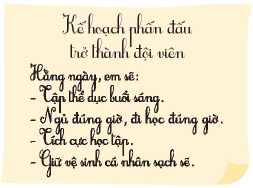 Kế hoạch phấn đấu
trở thành đội viên
Hằng ngày, em sẽ:
- Tập thể dục buổi sáng.
- Ngủ đúng giờ, đi học đúng giờ.
- Tích cực học tập.
- Giữ vệ sinh cá nhân sạch sẽ.